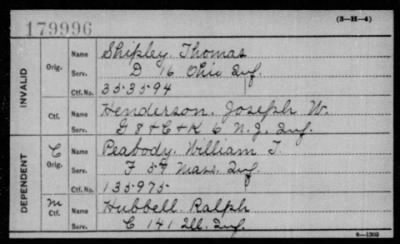 179996
(3-H-4)
INVALID
Orig. Name Shipley. Thomas
Serv. D 16 Ohio Inf.
Ctf. No. 353594
Ctf. Name Henderson, Joseph W.
Serv. G 8 + E + K 6 N.J. Inf.
DEPENDENT
C Orig. Name Peabody. William T.
Serv. F 59 Mass. Inf.
Ctf. No. 135975
m Ctf. Name Hubbell Ralph
Serv. C 141 Ill. Inf.